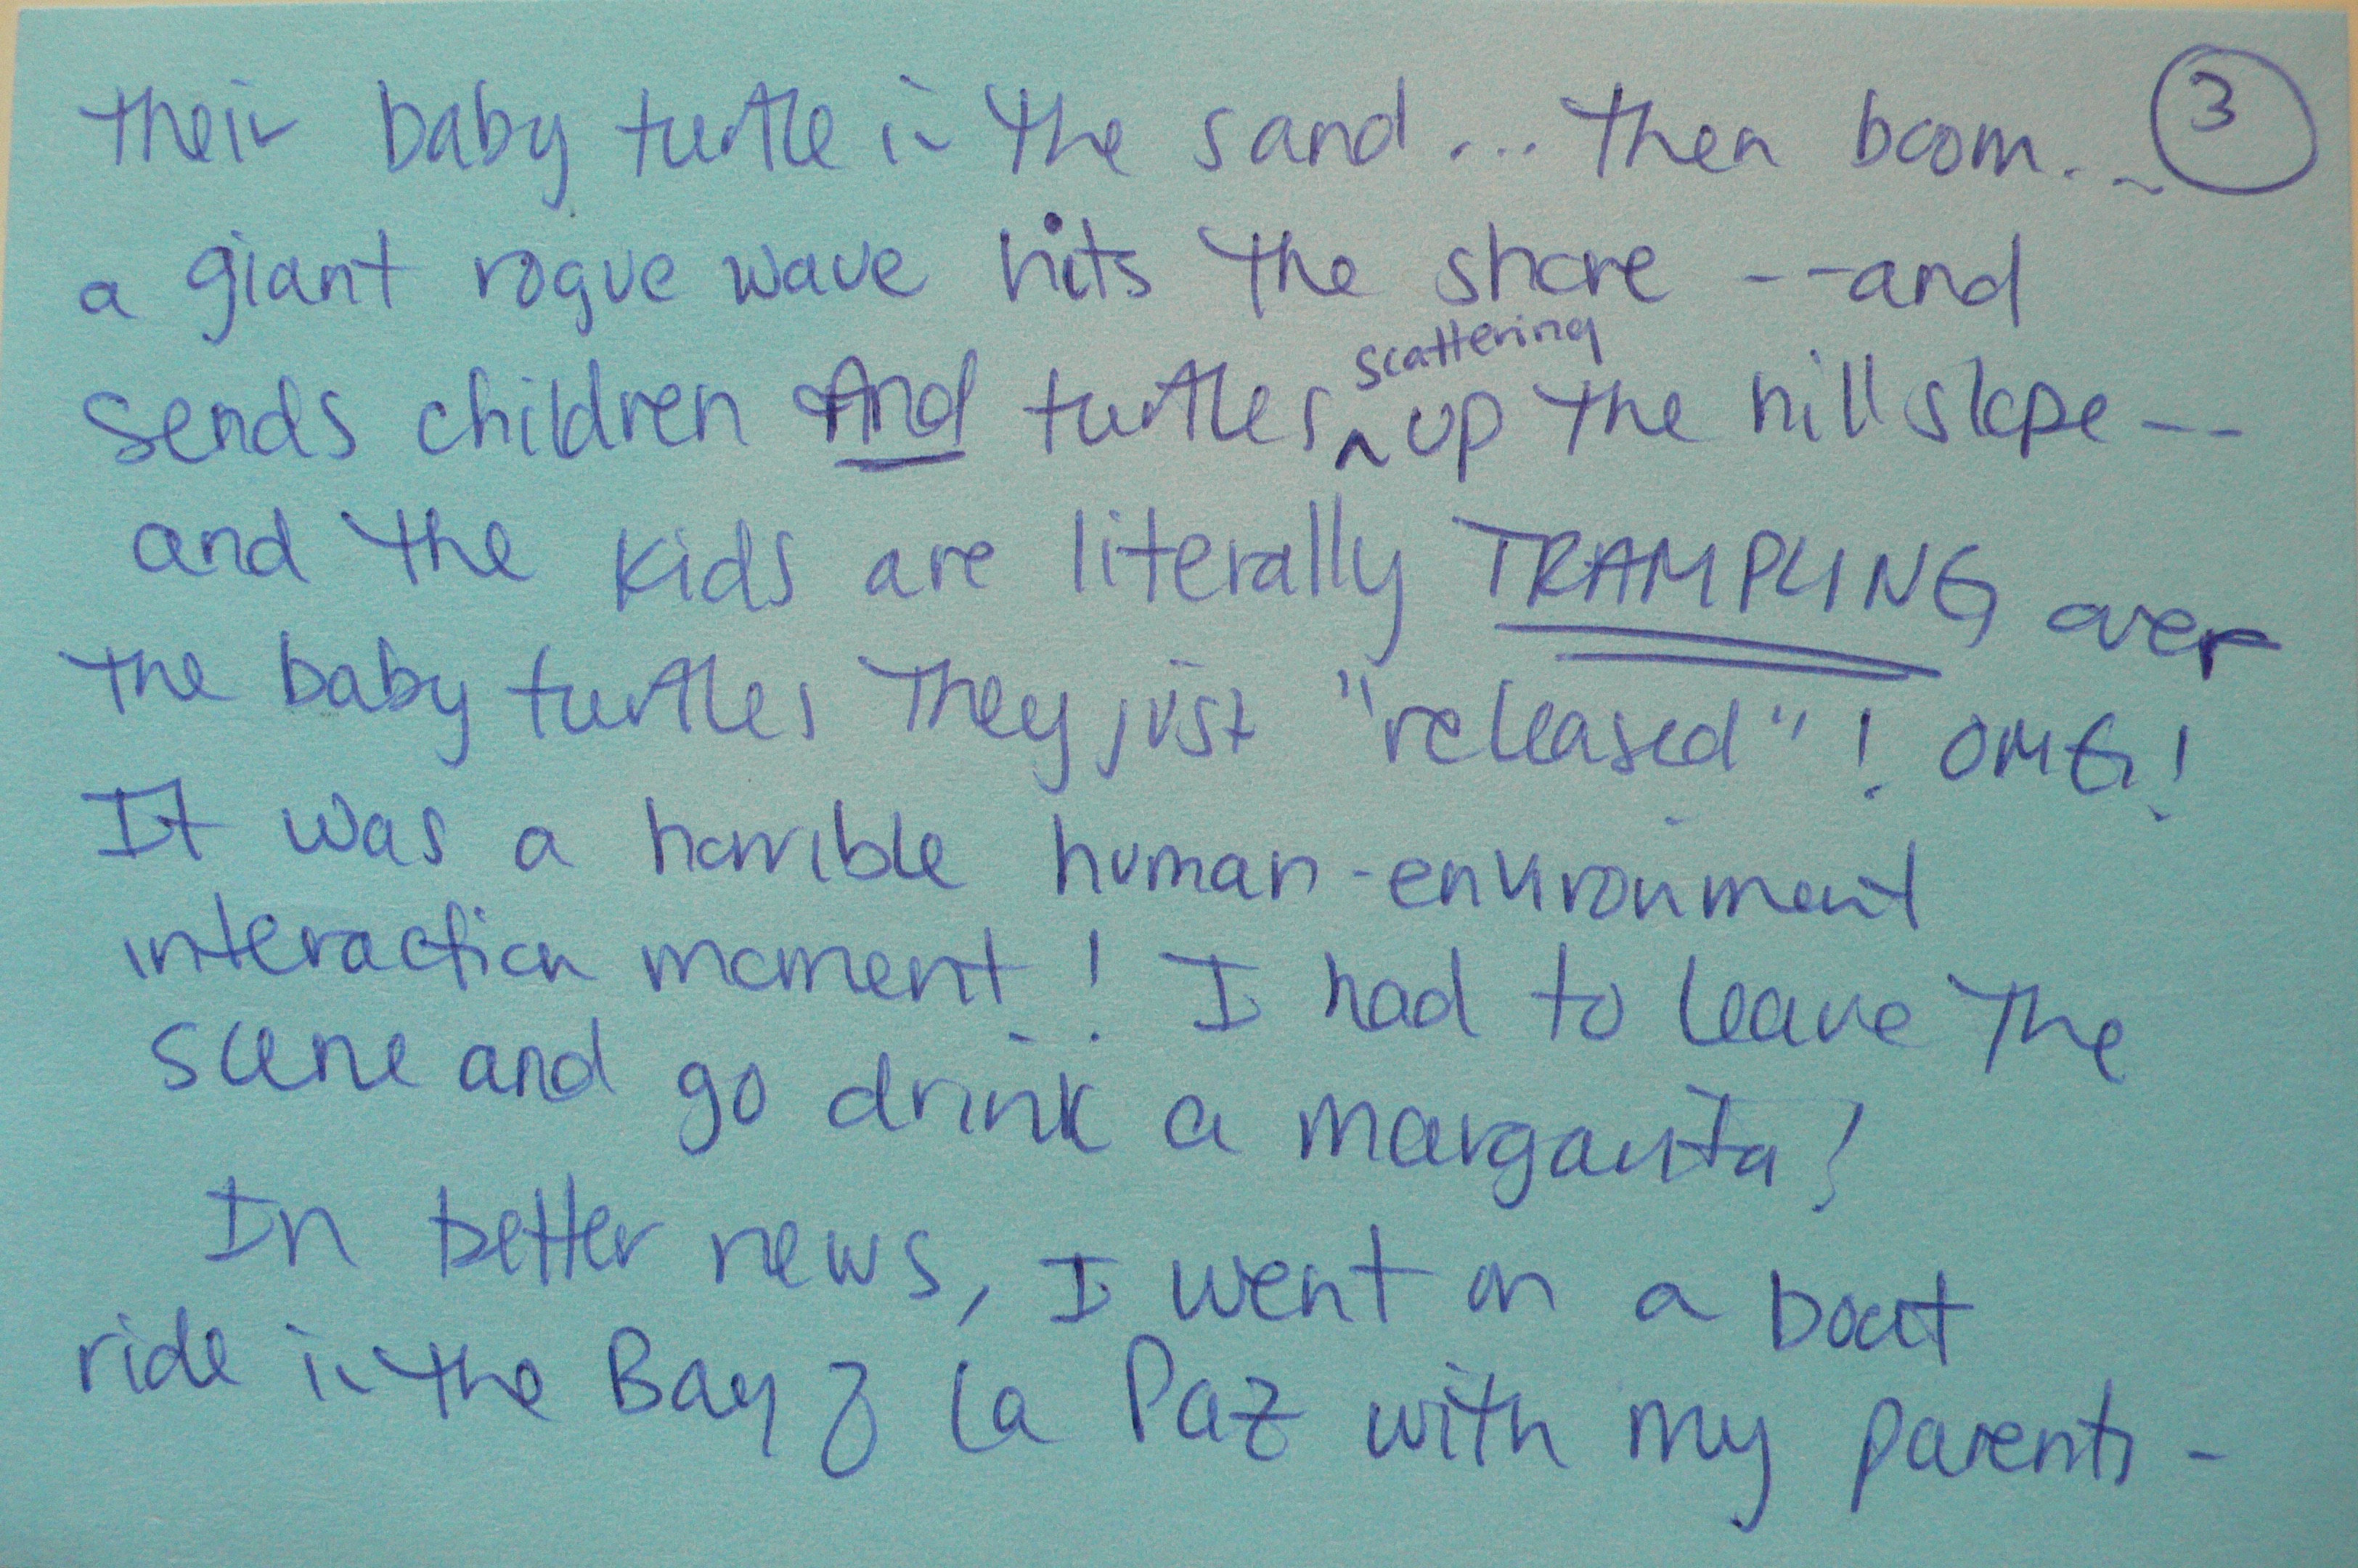 their baby turtle in the sand... then boom... ③
a giant rogue wave hits the shore -- and
sends children And turtles ^scattering up the hillslope --
and the kids are literally TRAMPLING over
the baby turtles they just "released"! OMG!
It was a horrible human-environment
interaction moment! I had to leave the
scene and go drink a margarita!
In better news, I went on a boat
ride in the Bay of La Paz with my parents -